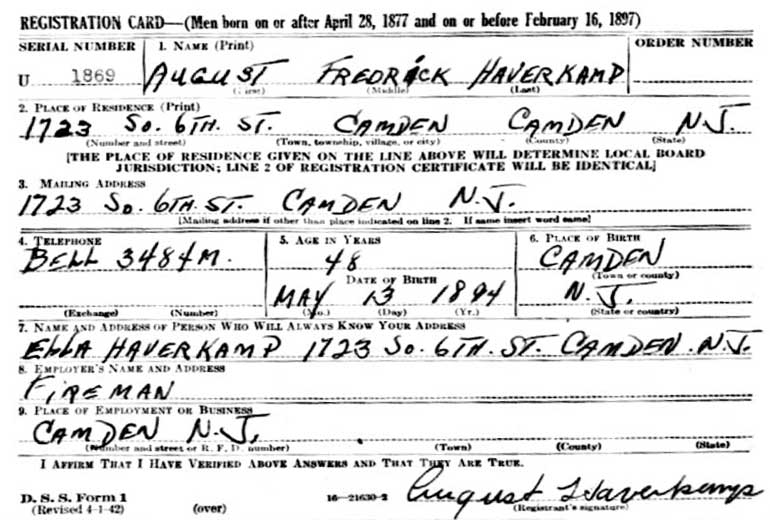 REGISTRATION CARD—(Men born on or after April 28, 1877 and on or before February 16, 1897)
SERIAL NUMBER 1. NAME (Print) ORDER NUMBER
U 1869 AUGUST FREDRICK HAVERKAMP
(First) (Middle) (Last)
2. PLACE OF RESIDENCE (Print)
1723 So. 6TH. ST. CAMDEN CAMDEN N.J.
(Number and street) (Town, township, village, or city) (County) (State)
[THE PLACE OF RESIDENCE GIVEN ON THE LINE ABOVE WILL DETERMINE LOCAL BOARD
JURISDICTION; LINE 2 OF REGISTRATION CERTIFICATE WILL BE IDENTICAL]
3. MAILING ADDRESS
1723 So. 6TH. ST. CAMDEN N.J.
[Mailing address if other than place indicated on line 2. If same insert word same]
4. TELEPHONE 5. AGE IN YEARS 6. PLACE OF BIRTH
BELL 3484M. 48 CAMDEN
(Town or county)
DATE OF BIRTH
MAY 13 1894 N.J.
(Exchange) (Number) (Mo.) (Day) (Yr.) (State or country)
7. NAME AND ADDRESS OF PERSON WHO WILL ALWAYS KNOW YOUR ADDRESS
ELLA HAVERKAMP 1723 So. 6TH. ST. CAMDEN. N.J.
8. EMPLOYER'S NAME AND ADDRESS
FIREMAN
9. PLACE OF EMPLOYMENT OR BUSINESS
CAMDEN N.J.
(Number and street or R. F. D. number) (Town) (County) (State)
I AFFIRM THAT I HAVE VERIFIED ABOVE ANSWERS AND THAT THEY ARE TRUE.
D. S. S. Form 1
(Revised 4-1-42) (over) 16—21630-2 August Haverkamp
(Registrant's signature)